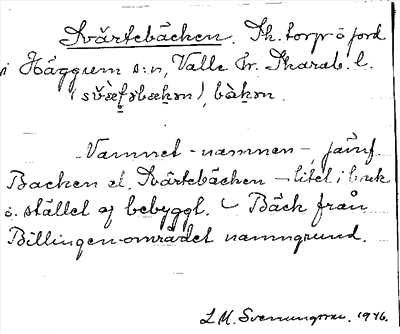 Svärtebäcken. Fh. torp o jord
i Häggum s:n, Valle hr. Skarab. l.
bàkən.
Namnet - namnen -, jämf
Backen el. Svärtebäcken - litet i bruk
o. stället ej bebyggt. - Bäck från
Billingen-området namngrund.
L. M. Svenungsson. 1946.